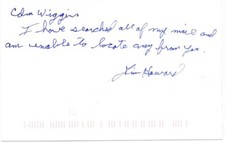 Colin Wiggins
I have searched all of my mail and
am unable to locate any from you.
Jim Howard